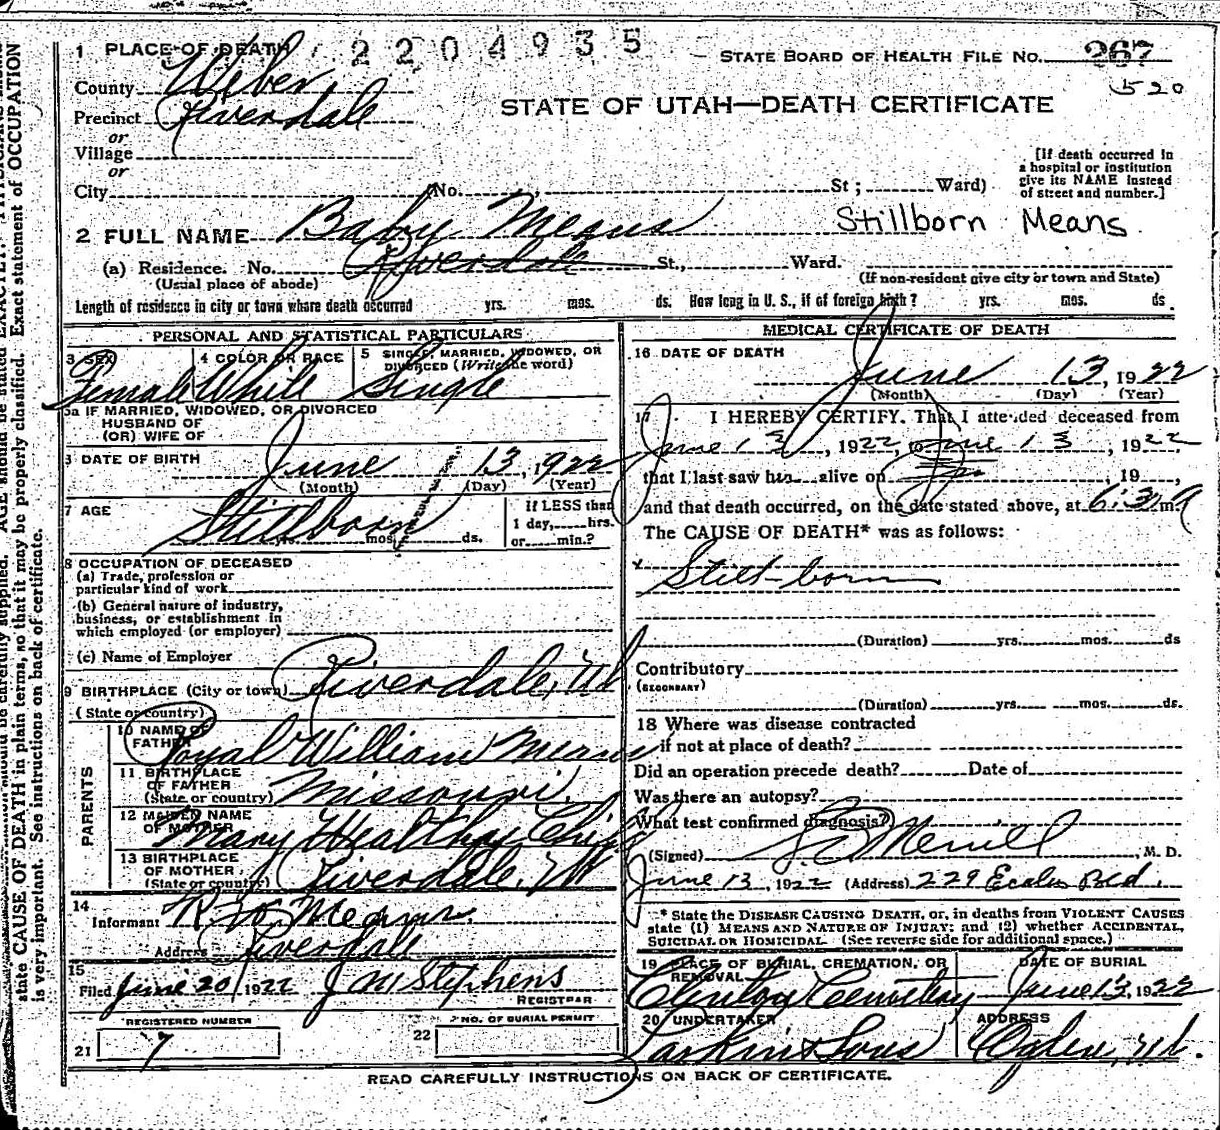 1 PLACE OF DEATH 2204935
STATE BOARD OF HEALTH FILE NO. 267
County Weber
520
STATE OF UTAH—DEATH CERTIFICATE
Precinct Riverdale
or
Village
or
City No. St; Ward)
[If death occurred in
a hospital or institution
give its NAME instead
of street and number.]
2 FULL NAME Baby Means
Stillborn Means
(a) Residence. No. Riverdale St., Ward.
(Usual place of abode) (If non-resident give city or town and State)
Length of residence in city or town where death occurred yrs. mos. ds. How long in U. S., if of foreign birth? yrs. mos. ds.
PERSONAL AND STATISTICAL PARTICULARS
3 SEX 4 COLOR OR RACE 5 SINGLE, MARRIED, WIDOWED, OR
DIVORCED (Write the word)
Female White Single
5a IF MARRIED, WIDOWED, OR DIVORCED
HUSBAND OF
(OR) WIFE OF
DATE OF BIRTH June 13, 1922
(Month) (Day) (Year)
7 AGE Stillborn
yrs. mos. ds.
If LESS than
1 day, hrs.
or min.?
8 OCCUPATION OF DECEASED
(a) Trade, profession or
particular kind of work
(b) General nature of industry,
business, or establishment in
which employed (or employer)
(c) Name of Employer
9 BIRTHPLACE (City or town) Riverdale, Ut
(State or country)
PARENTS
10 NAME OF
FATHER Royal William Means
11 BIRTHPLACE
OF FATHER
(State or country) Missouri.
12 MAIDEN NAME
OF MOTHER Mary Healthy
13 BIRTHPLACE
OF MOTHER
(State or country) Riverdale, Ut
14
Informant R. W. Means
Address Riverdale
15
Filed June 20, 1922 J M Stephens
REGISTRAR
REGISTERED NUMBER NO. OF BURIAL PERMIT
21 7 22
MEDICAL CERTIFICATE OF DEATH
16 DATE OF DEATH
June 13, 1922
(Month) (Day) (Year)
17 I HEREBY CERTIFY. That I attended deceased from
June 13, 1922, to June 13, 1922
that I last saw her alive on , 19 ,
and that death occurred, on the date stated above, at 6:30 m
The CAUSE OF DEATH* was as follows:
Still-born
(Duration) yrs. mos. ds
Contributory
(SECONDARY)
(Duration) yrs. mos. ds.
18 Where was disease contracted
if not at place of death?
Did an operation precede death? Date of
Was there an autopsy?
What test confirmed diagnosis?
(Signed) Merrill, M. D.
June 13, 1922 (Address) 229 Eccles Bld.
* State the DISEASE CAUSING DEATH, or, in deaths from VIOLENT CAUSES
state (1) MEANS AND NATURE OF INJURY; and (2) whether ACCIDENTAL,
SUICIDAL OR HOMICIDAL. (See reverse side for additional space.)
19 PLACE OF BURIAL, CREMATION, OR
REMOVAL
DATE OF BURIAL
Clinton Cemetery June 13, 1922
20 UNDERTAKER ADDRESS
Larkin & Sons Ogden, Ut.
READ CAREFULLY INSTRUCTIONS ON BACK OF CERTIFICATE.
state CAUSE OF DEATH in plain terms, so that it may be properly classified. Exact statement of OCCUPATION
is very important. See instructions on back of certificate.